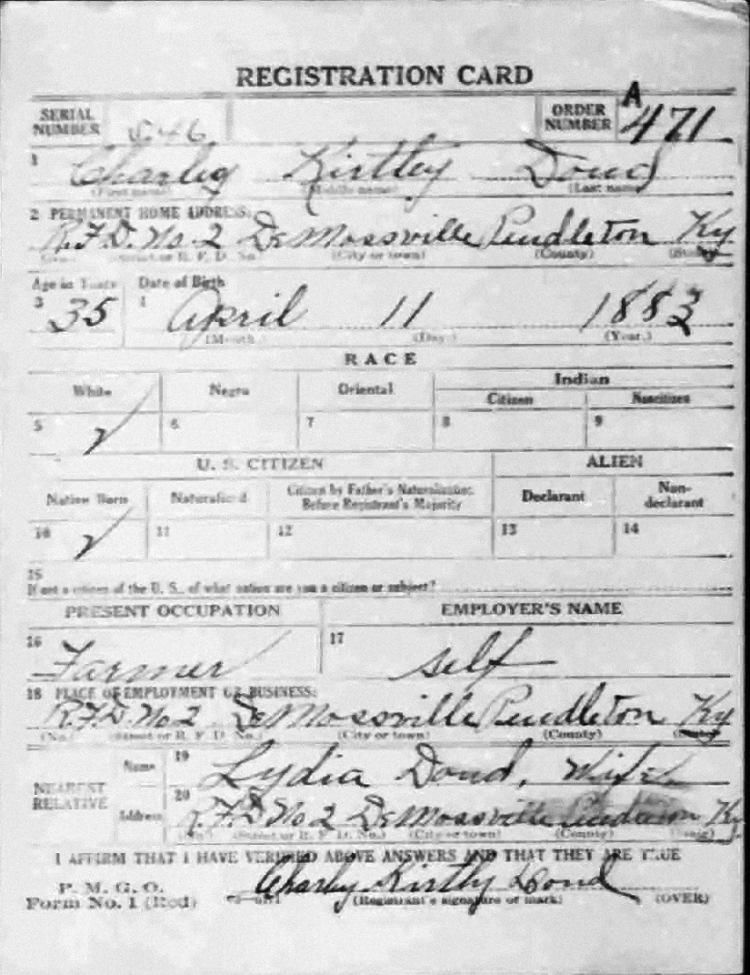 REGISTRATION CARD
SERIAL NUMBER 546 ORDER NUMBER A 471
1 Charley Kirtley Doud
(First name) (Middle name) (Last name)
2 PERMANENT HOME ADDRESS:
R.F.D. No. 2 DeMossville Pendleton Ky
(No.) (Street or R. F. D. No.) (City or town) (County) (State)
Age in Years Date of Birth
3 35 4 April 11 1883
(Month.) (Day.) (Year.)
RACE
White Negro Oriental Indian
Citizen Noncitizen
5 ✓ 6 7 8 9
U. S. CITIZEN ALIEN
Native Born Naturalized Citizen by Father's Naturalization Before Registrant's Majority Declarant Non-declarant
10 ✓ 11 12 13 14
15
If not a citizen of the U. S., of what nation are you a citizen or subject?
PRESENT OCCUPATION EMPLOYER'S NAME
16 Farmer 17 self
18 PLACE OF EMPLOYMENT OR BUSINESS:
R.F.D. No 2 DeMossville Pendleton Ky
(No.) (Street or R. F. D. No.) (City or town) (County) (State)
NEAREST RELATIVE Name 19 Lydia Doud, Wife
Address 20 R.F.D No 2 DeMossville Pendleton Ky
(No.) (Street or R. F. D. No.) (City or town) (County) (State)
I AFFIRM THAT I HAVE VERIFIED ABOVE ANSWERS AND THAT THEY ARE TRUE
P. M. G. O.
Form No. 1 (Red) Charly Kirtly Doud
(Registrant's signature or mark) (OVER)